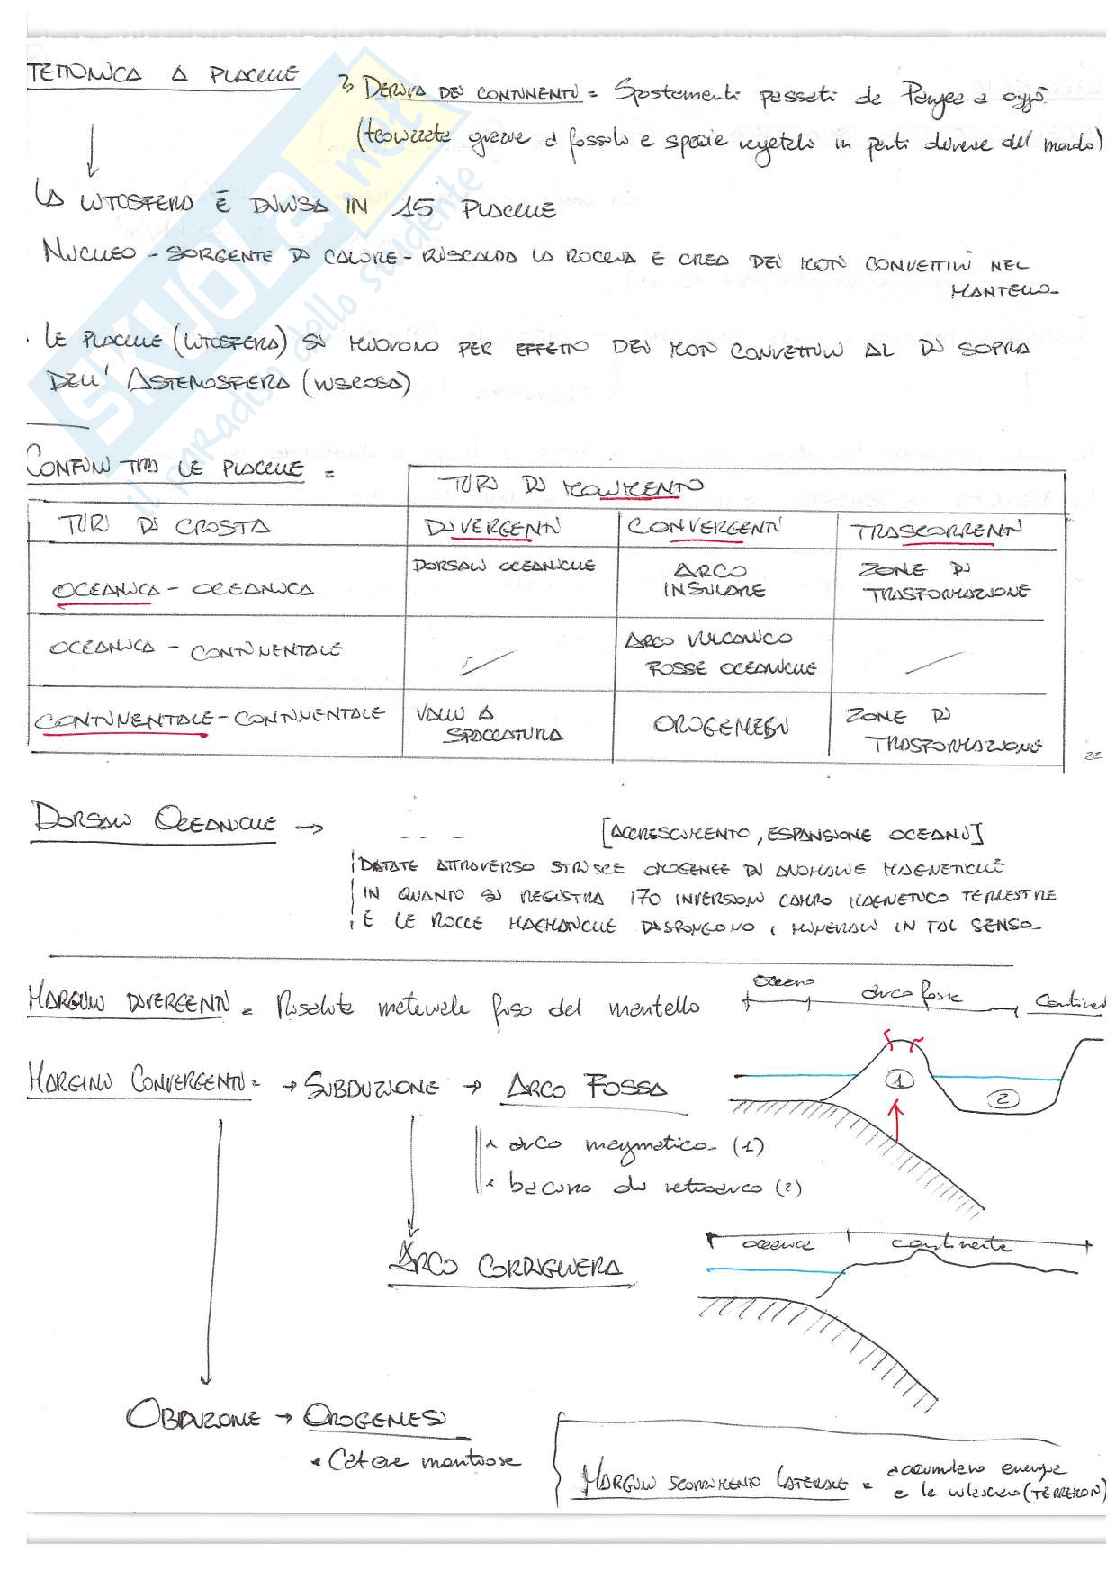 TETTONICA A PLACCHE
DERIVA DEI CONTINENTI = Spostamenti passati da Pangea a oggi.
(teorizzata grazie a fossili e specie vegetali in parti diverse del mondo)
LA LITOSFERA È DIVISA IN 15 PLACCHE
NUCLEO - SORGENTE DI CALORE - RISCALDA LA ROCCIA E CREA DEI MOTI CONVETTIVI NEL
MANTELLO.
LE PLACCHE (LITOSFERA) SI MUOVONO PER EFFETTO DEI MOTI CONVETTIVI AL DI SOPRA
DELL'ASTENOSFERA (VISCOSA)
CONFINI TRA LE PLACCHE =
TIPI DI MOVIMENTO
TIPI DI CROSTA DIVERGENTI CONVERGENTI TRASCORRENTI
OCEANICA - OCEANICA DORSALI OCEANICHE ARCO INSULARE ZONE DI TRASFORMAZIONE
OCEANICA - CONTINENTALE ARCO VULCANICO FOSSE OCEANICHE
CONTINENTALE - CONTINENTALE VALLI A SPACCATURA OROGENESI ZONE DI TRASFORMAZIONE
22
DORSALI OCEANICHE → [ACCRESCIMENTO, ESPANSIONE OCEANI]
DATATE ATTRAVERSO STRISCE OMOGENEE DI ANOMALIE MAGNETICHE
IN QUANTO SI REGISTRA 170 INVERSIONI CAMPO MAGNETICO TERRESTRE
E LE ROCCE MAGMATICHE DISPONGONO I MINERALI IN TAL SENSO.
MARGINI DIVERGENTI = Risalita materiale fuso del mantello
oceano arco fossa Continente
MARGINI CONVERGENTI = → SUBDUZIONE → ARCO FOSSA
1 2
• arco magmatico (1)
• bacino di retroarco (2)
ARCO CORDIGLIERA
oceanica continente
OBDUZIONE → OROGENESI
• Catene montuose
MARGINI SCORRIMENTO LATERALE = accumulano energia
e la rilasciano (TERREMOTI)
SKUOLA.net
il paradiso dello studente